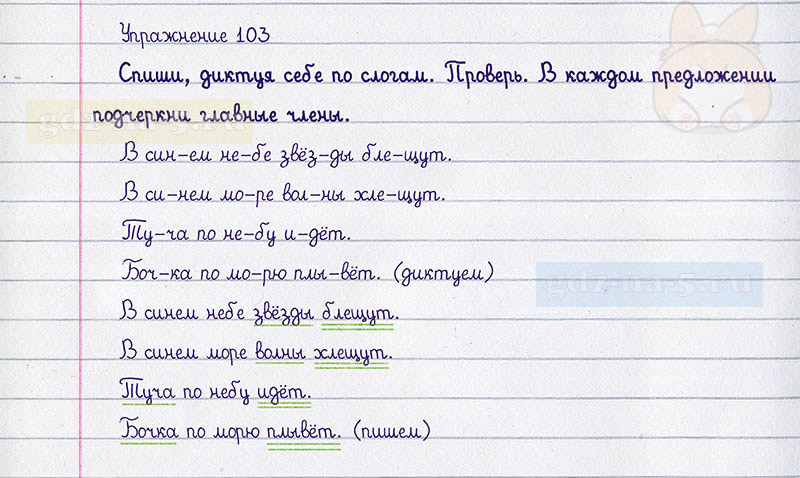 Упражнение 103
Спиши, диктуя себе по слогам. Проверь. В каждом предложении
подчеркни главные члены.
В син-ем не-бе звёз-ды бле-щут.
В си-нем мо-ре вол-ны хле-щут.
Ту-ча по не-бу и-дёт.
Боч-ка по мо-рю плы-вёт. (диктуем)
В синем небе звёзды блещут.
В синем море волны хлещут.
Туча по небу идёт.
Бочка по морю плывёт. (пишем)
gdz-na-5.ru
gdz-na-5.ru